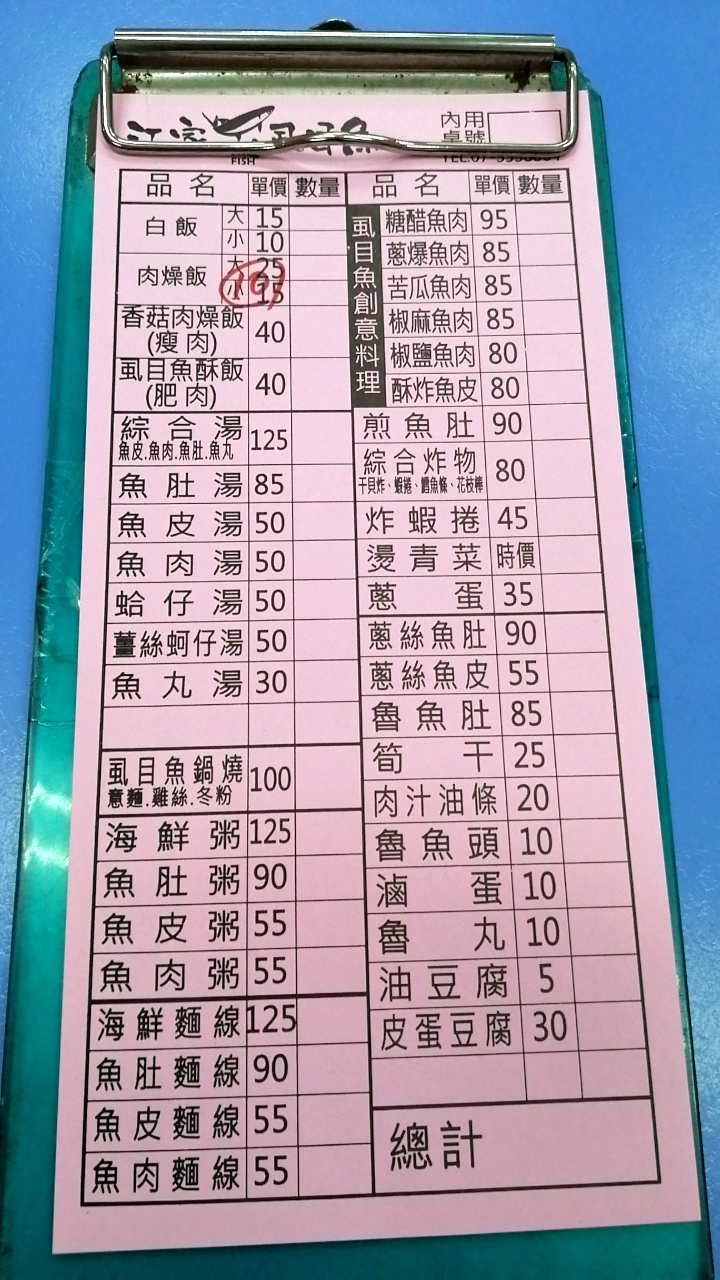 FISH
內用
桌號
品名 單價 數量
白飯 大 15
小 10
肉燥飯 大 25
小 15
香菇肉燥飯 40
(瘦肉)
虱目魚酥飯 40
(肥肉)
綜合湯 125
魚皮.魚肉.魚肚.魚丸
魚肚湯 85
魚皮湯 50
魚肉湯 50
蛤仔湯 50
薑絲蚵仔湯 50
魚丸湯 30
虱目魚鍋燒 100
意麵.雞絲.冬粉
海鮮粥 125
魚肚粥 90
魚皮粥 55
魚肉粥 55
海鮮麵線 125
魚肚麵線 90
魚皮麵線 55
魚肉麵線 55
品名 單價 數量
虱目魚創意料理
糖醋魚肉 95
蔥爆魚肉 85
苦瓜魚肉 85
椒麻魚肉 85
椒鹽魚肉 80
酥炸魚皮 80
煎魚肚 90
綜合炸物 80
干貝炸、蝦捲、鱈魚條、花枝棒
炸蝦捲 45
燙青菜 時價
蔥蛋 35
蔥絲魚肚 90
蔥絲魚皮 55
魯魚肚 85
筍干 25
肉汁油條 20
魯魚頭 10
滷蛋 10
魯丸 10
油豆腐 5
皮蛋豆腐 30
總計